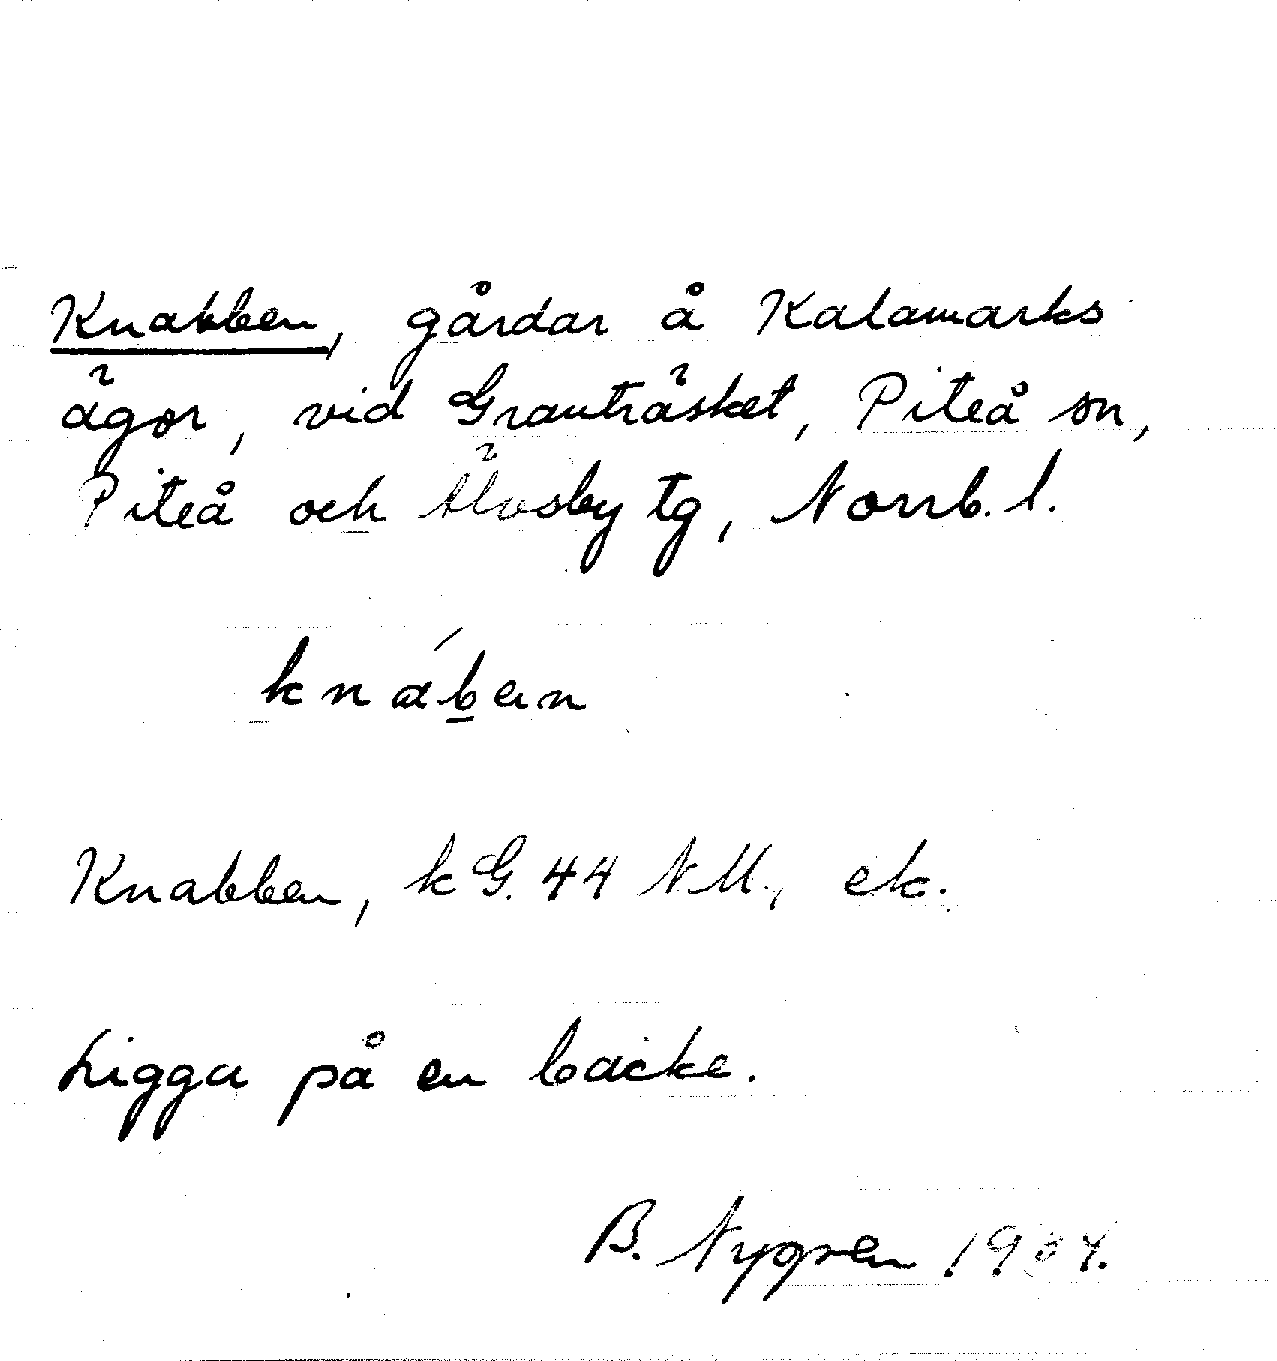 Knabben, gårdar å Kalamarks
ägor, vid Granträsket, Piteå sn,
Piteå och Älvsby tg, Norrb. l.
knáb̲en
Knabben, kG. 44 NM., ek.
Ligga på en backe.
B. Nygren 1934.